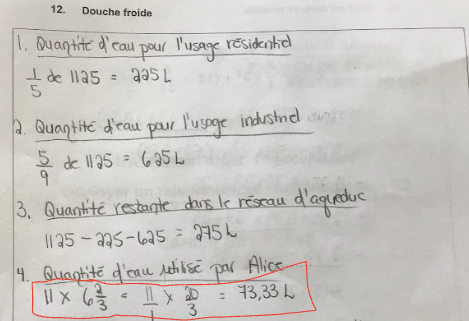 12. Douche froide
1. Quantité d'eau pour l'usage résidentiel
1/5 de 1125 = 225 L
2. Quantité d'eau pour l'usage industriel
5/9 de 1125 = 625 L
3. Quantité restante dans le réseau d'aqueduc
1125 - 225 - 625 = 275 L
4. Quantité d'eau utilisé par Alice
11 × 6 2/3 = 11/1 × 20/3 = 73,33 L